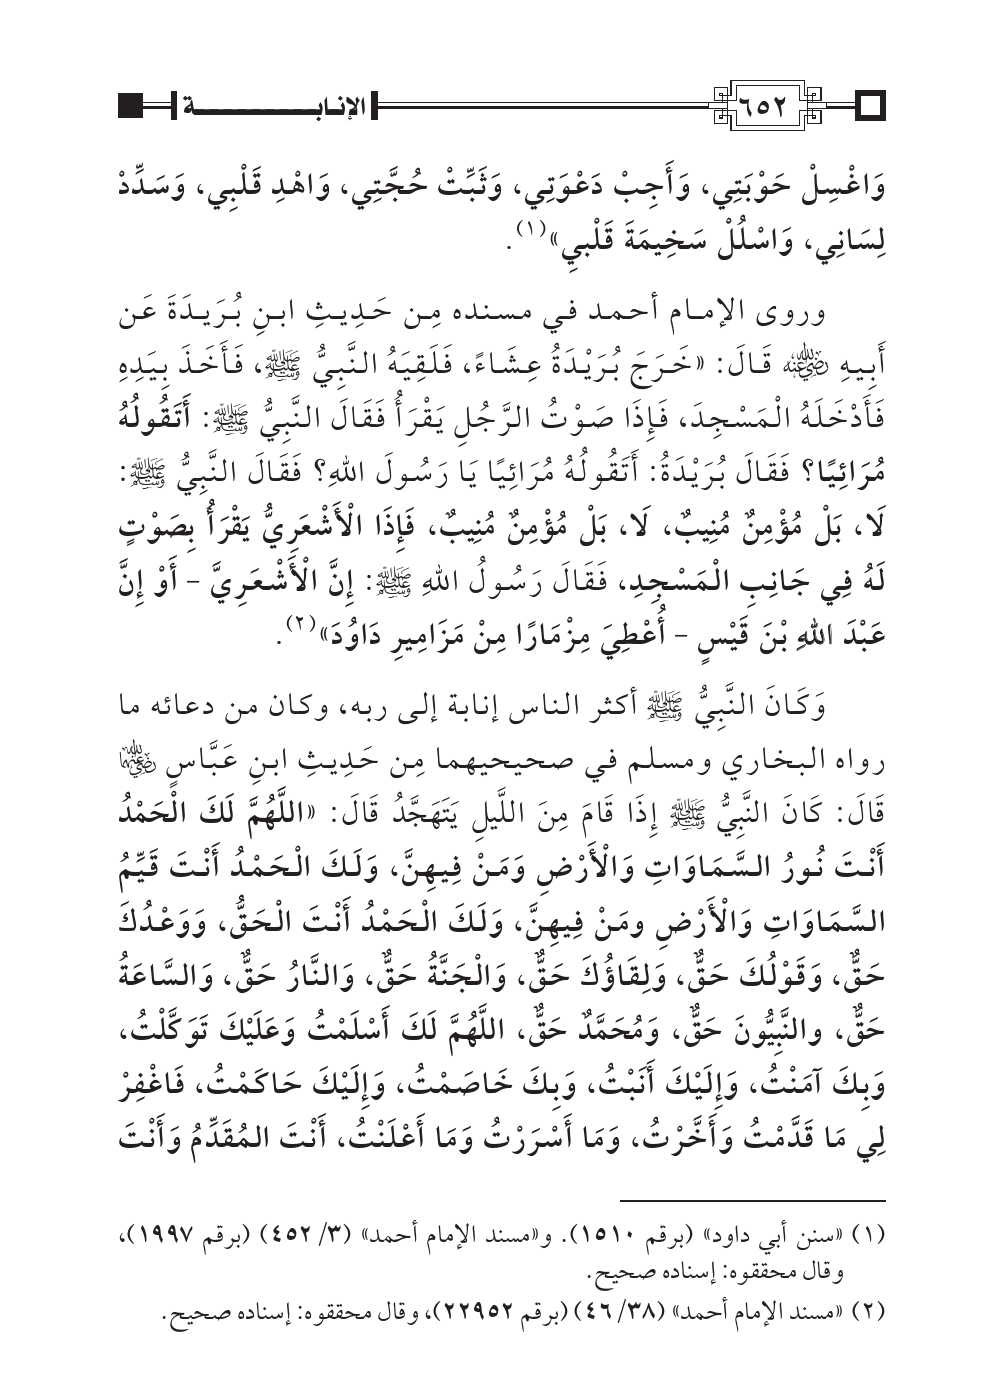 ٦٥٢
الإنابـــــــــة
وَاغْسِلْ حَوْبَتِي، وَأَجِبْ دَعْوَتِي، وَثَبِّتْ حُجَّتِي، وَاهْدِ قَلْبِي، وَسَدِّدْ
لِسَانِي، وَاسْلُلْ سَخِيمَةَ قَلْبِي»(١).
وروى الإمام أحمد في مسنده مِن حَدِيثِ ابنِ بُرَيدَةَ عَن
أَبِيهِ رضي الله عنه قَالَ: «خَرَجَ بُرَيْدَةُ عِشَاءً، فَلَقِيَهُ النَّبِيُّ ﷺ، فَأَخَذَ بِيَدِهِ
فَأَدْخَلَهُ الْمَسْجِدَ، فَإِذَا صَوْتُ الرَّجُلِ يَقْرَأُ فَقَالَ النَّبِيُّ ﷺ: أَتَقُولُهُ
مُرَائِيًا؟ فَقَالَ بُرَيْدَةُ: أَتَقُولُهُ مُرَائِيًا يَا رَسُولَ اللهِ؟ فَقَالَ النَّبِيُّ ﷺ:
لَا، بَلْ مُؤْمِنٌ مُنِيبٌ، لَا، بَلْ مُؤْمِنٌ مُنِيبٌ، فَإِذَا الْأَشْعَرِيُّ يَقْرَأُ بِصَوْتٍ
لَهُ فِي جَانِبِ الْمَسْجِدِ، فَقَالَ رَسُولُ اللهِ ﷺ: إِنَّ الْأَشْعَرِيَّ - أَوْ إِنَّ
عَبْدَ اللهِ بْنَ قَيْسٍ - أُعْطِيَ مِزْمَارًا مِنْ مَزَامِيرِ دَاوُدَ»(٢).
وَكَانَ النَّبِيُّ ﷺ أكثر الناس إنابة إلى ربه، وكان من دعائه ما
رواه البخاري ومسلم في صحيحيهما مِن حَدِيثِ ابنِ عَبَّاسٍ رضي الله عنهما
قَالَ: كَانَ النَّبِيُّ ﷺ إِذَا قَامَ مِنَ اللَّيلِ يَتَهَجَّدُ قَالَ: «اللَّهُمَّ لَكَ الْحَمْدُ
أَنْتَ نُورُ السَّمَاوَاتِ وَالْأَرْضِ وَمَنْ فِيهِنَّ، وَلَكَ الْحَمْدُ أَنْتَ قَيِّمُ
السَّمَاوَاتِ وَالْأَرْضِ ومَنْ فِيهِنَّ، وَلَكَ الْحَمْدُ أَنْتَ الْحَقُّ، وَوَعْدُكَ
حَقٌّ، وَقَوْلُكَ حَقٌّ، وَلِقَاؤُكَ حَقٌّ، وَالْجَنَّةُ حَقٌّ، وَالنَّارُ حَقٌّ، وَالسَّاعَةُ
حَقٌّ، والنَّبِيُّونَ حَقٌّ، وَمُحَمَّدٌ حَقٌّ، اللَّهُمَّ لَكَ أَسْلَمْتُ وَعَلَيْكَ تَوَكَّلْتُ،
وَبِكَ آمَنْتُ، وَإِلَيْكَ أَنَبْتُ، وَبِكَ خَاصَمْتُ، وَإِلَيْكَ حَاكَمْتُ، فَاغْفِرْ
لِي مَا قَدَّمْتُ وَأَخَّرْتُ، وَمَا أَسْرَرْتُ وَمَا أَعْلَنْتُ، أَنْتَ المُقَدِّمُ وَأَنْتَ
(١) «سنن أبي داود» (برقم ١٥١٠). و«مسند الإمام أحمد» (٣/ ٤٥٢) (برقم ١٩٩٧)،
وقال محققوه: إسناده صحيح.
(٢) «مسند الإمام أحمد» (٣٨/ ٤٦) (برقم ٢٢٩٥٢)، وقال محققوه: إسناده صحيح.